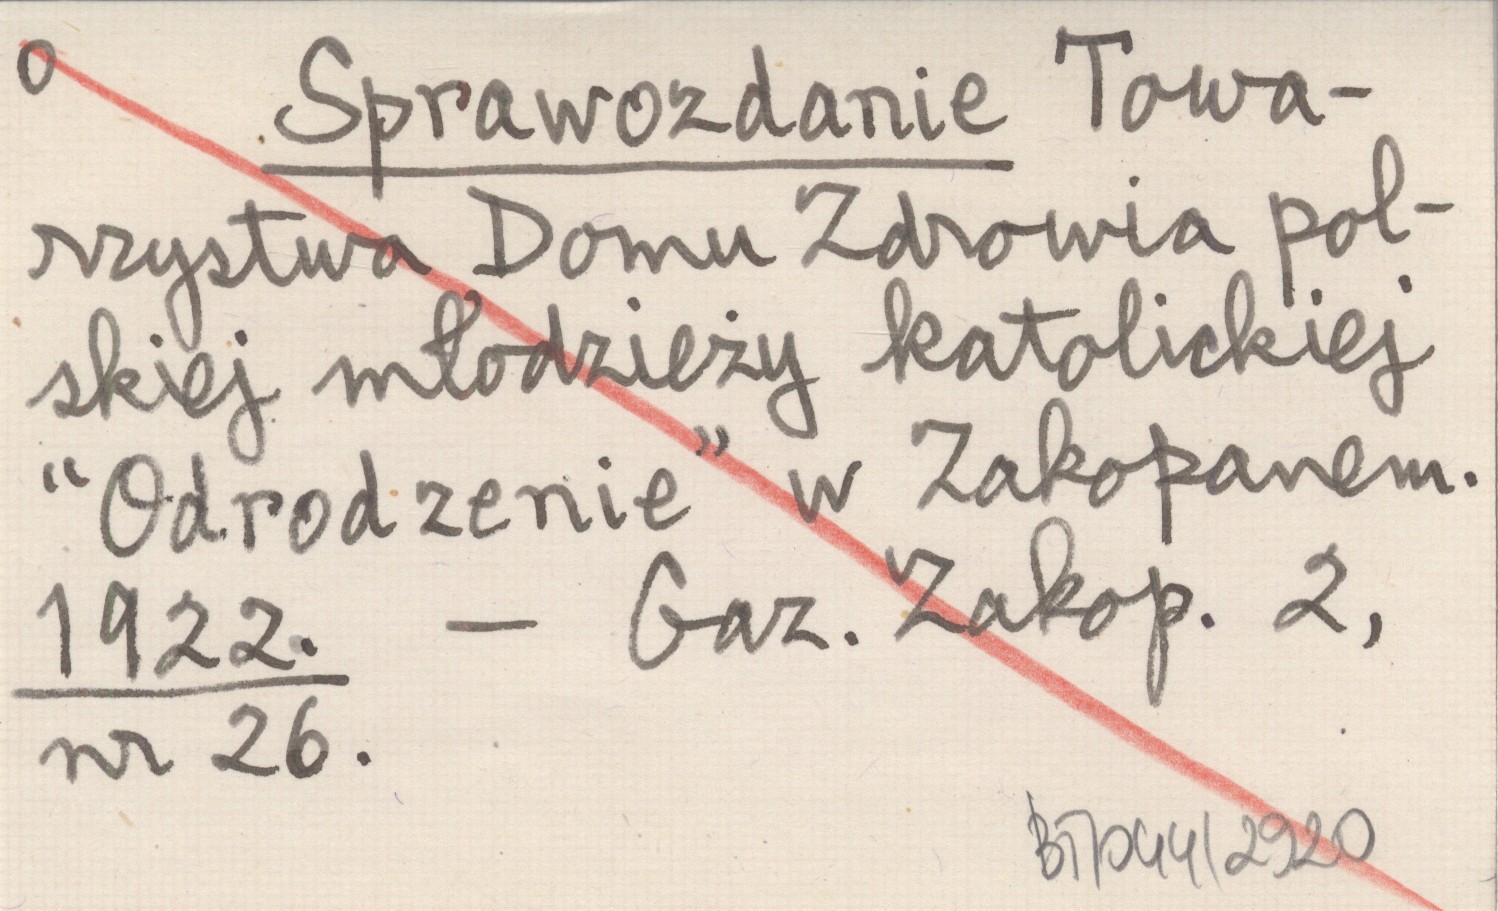 o Sprawozdanie Towa-
rzystwa Domu Zdrowia pol-
skiej młodzieży katolickiej
“Odrodzenie” w Zakopanem.
1922. — Gaz. Zakop. 2,
nr 26.
2920